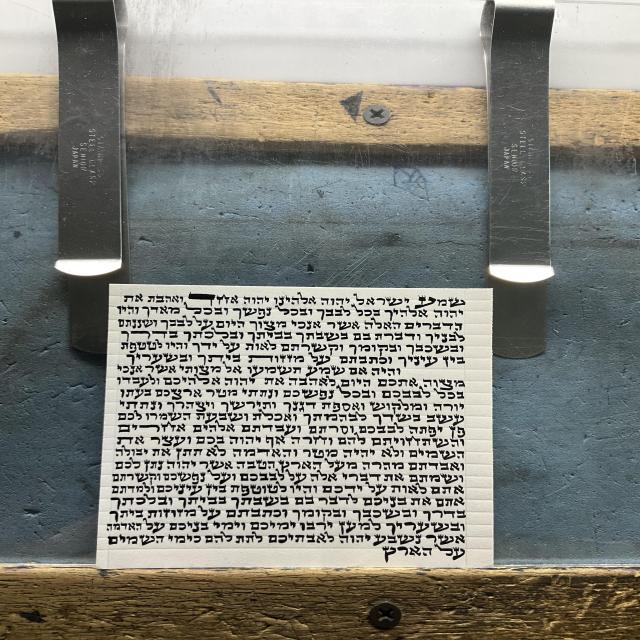 JAPAN
JAPAN
שמע ישראל יהוה אלהינו יהוה אחד ואהבת את
יהוה אלהיך בכל לבבך ובכל נפשך ובכל מאדך והיו
הדברים האלה אשר אנכי מצוך היום על לבבך ושננתם
לבניך ודברת בם בשבתך בביתך ובלכתך בדרך
ובשכבך ובקומך וקשרתם לאות על ידך והיו לטטפת
בין עיניך וכתבתם על מזזות ביתך ובשעריך
והיה אם שמע תשמעו אל מצותי אשר אנכי
מצוה אתכם היום לאהבה את יהוה אלהיכם ולעבדו
בכל לבבכם ובכל נפשכם ונתתי מטר ארצכם בעתו
יורה ומלקוש ואספת דגנך ותירשך ויצהרך ונתתי
עשב בשדך לבהמתך ואכלת ושבעת השמרו לכם
פן יפתה לבבכם וסרתם ועבדתם אלהים אחרים
והשתחויתם להם וחרה אף יהוה בכם ועצר את
השמים ולא יהיה מטר והאדמה לא תתן את יבולה
ואבדתם מהרה מעל הארץ הטבה אשר יהוה נתן לכם
ושמתם את דברי אלה על לבבכם ועל נפשכם וקשרתם
אתם לאות על ידכם והיו לטוטפת בין עיניכם ולמדתם
אתם את בניכם לדבר בם בשבתך בביתך ובלכתך
בדרך ובשכבך ובקומך וכתבתם על מזוזות ביתך
ובשעריך למען ירבו ימיכם וימי בניכם על האדמה
אשר נשבע יהוה לאבתיכם לתת להם כימי השמים
על הארץ